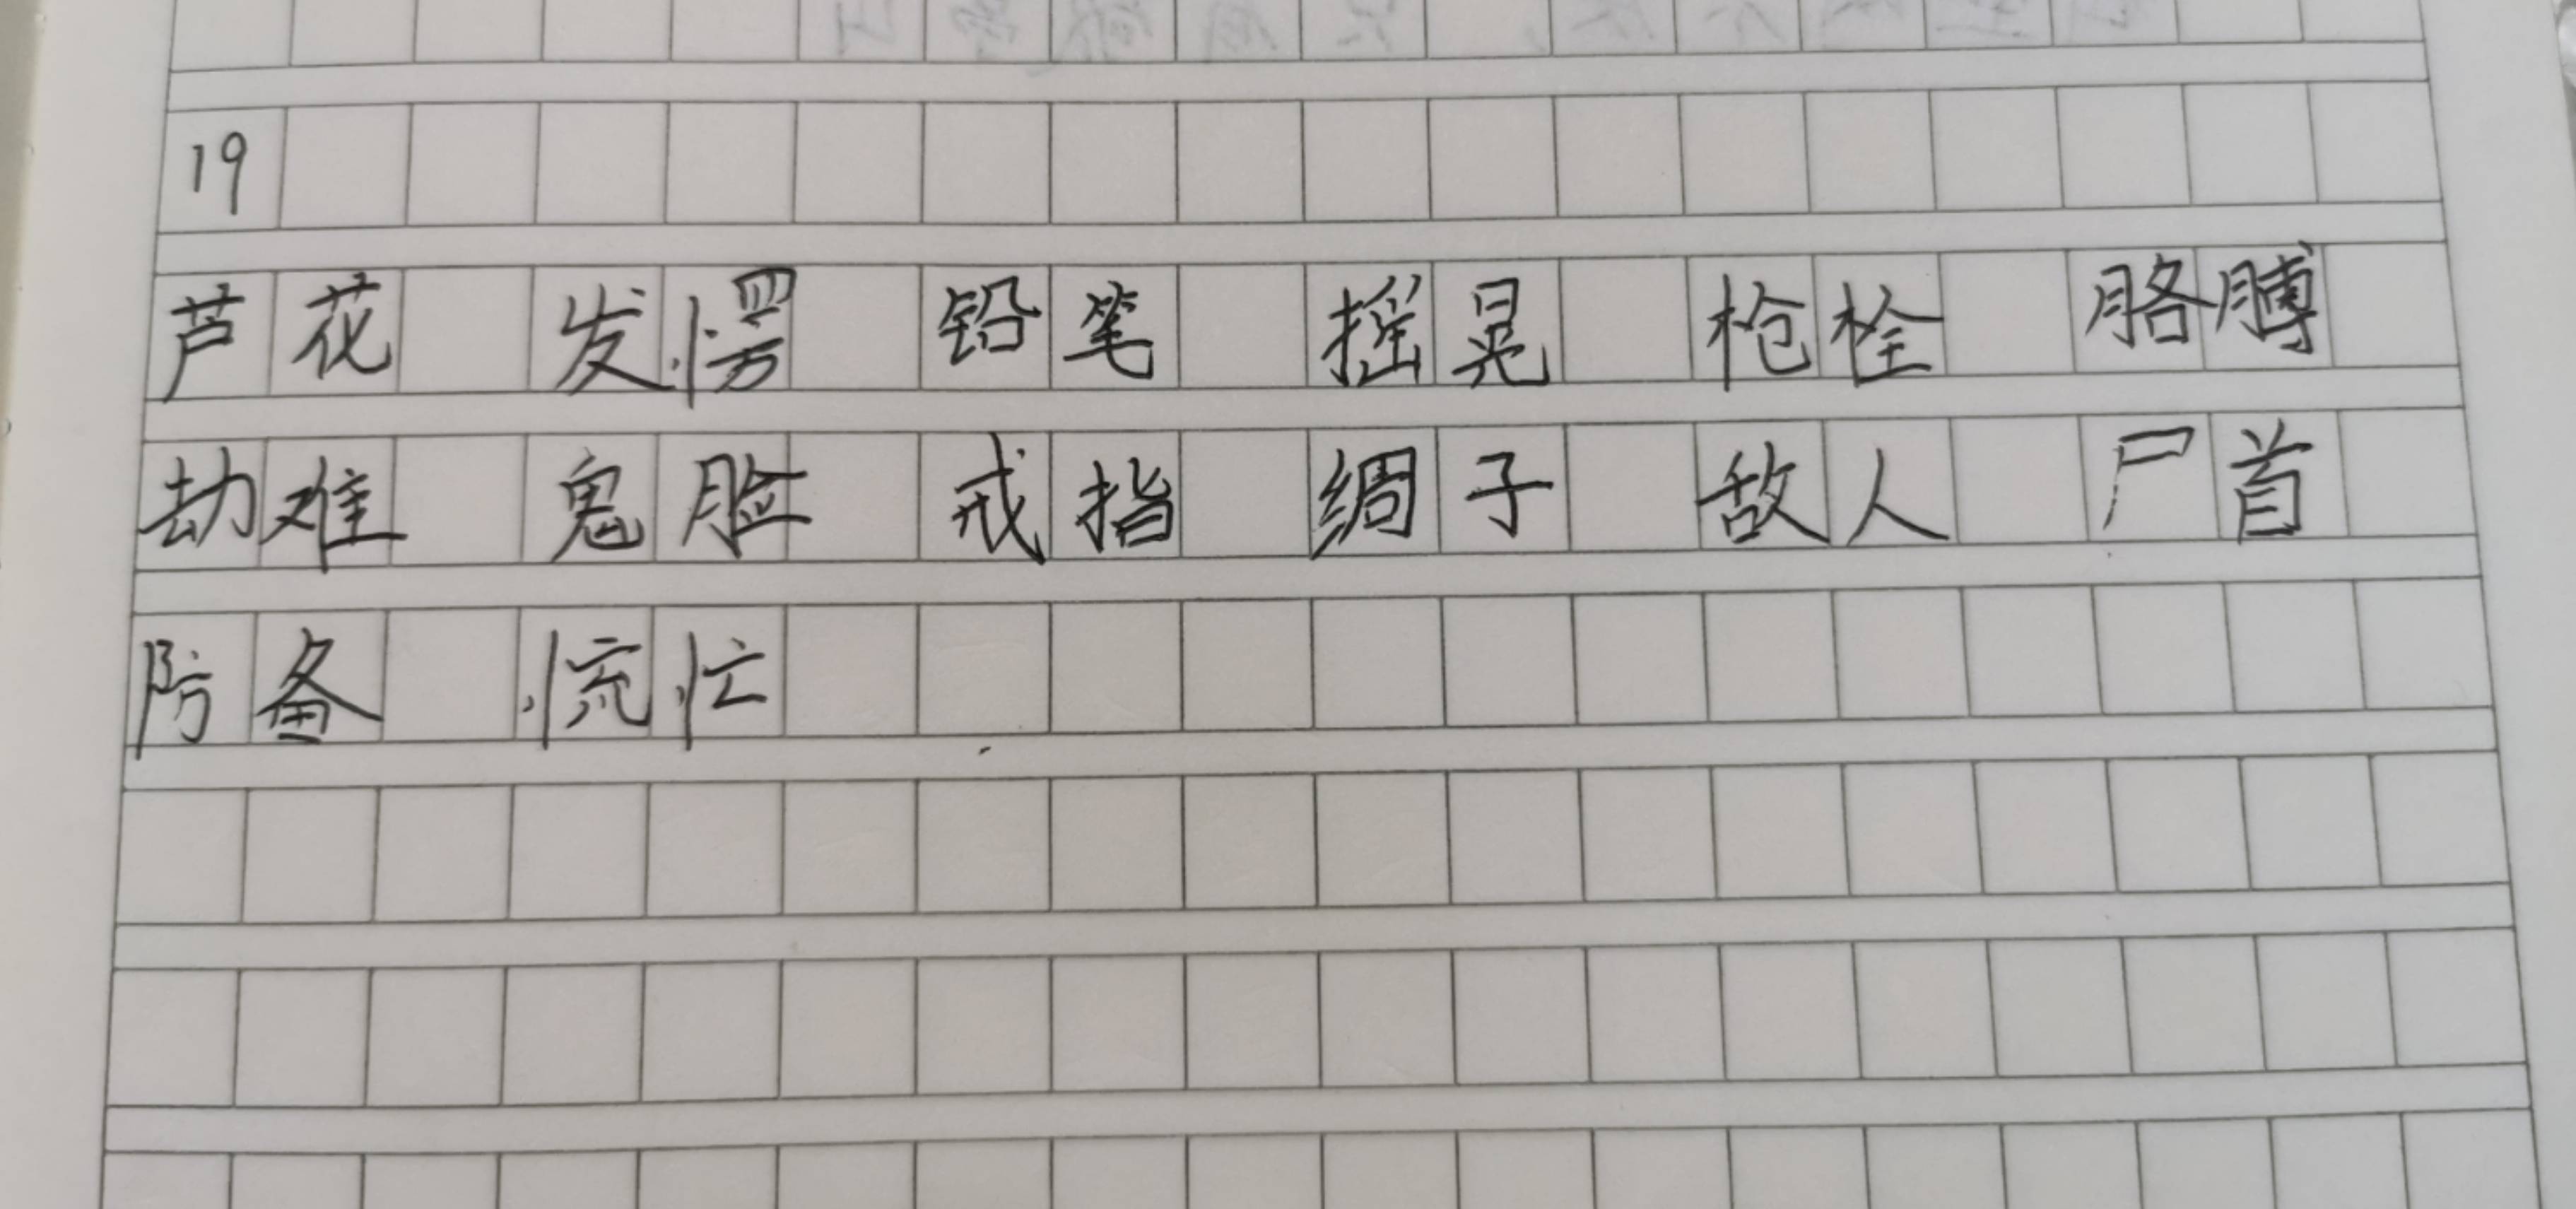 19
芦花 发愣 铅笔 摇晃 枪栓 胳膊
劫难 鬼脸 戒指 绸子 敌人 尸首
防备 慌忙